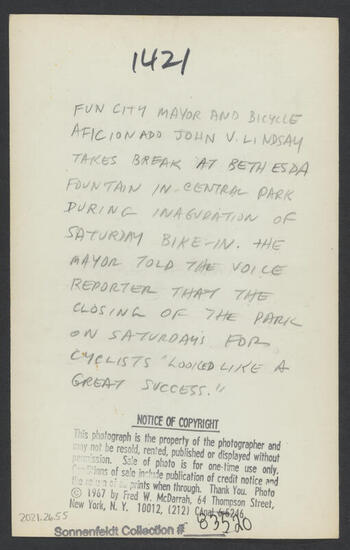 1421
FUN CITY MAYOR AND BICYCLE
AFICIONADO JOHN V. LINDSAY
TAKES BREAK AT BETHESDA
FOUNTAIN IN CENTRAL PARK
DURING INAGURATION OF
SATURDAY BIKE-IN. THE
MAYOR TOLD THE VOICE
REPORTER THAT THE
CLOSING OF THE PARK
ON SATURDAYS FOR
CYCLISTS "LOOKED LIKE A
GREAT SUCCESS."
NOTICE OF COPYRIGHT
This photograph is the property of the photographer and
may not be resold, rented, published or displayed without
permission. Sale of photo is for one-time use only.
Conditions of sale include publication of credit notice and
the return of prints when through. Thank You. Photo
© 1967 by Fred W. McDarrah, 64 Thompson Street,
New York, N. Y. 10012, (212)
2021.26.55
Sonnenfeldt Collection # 83520